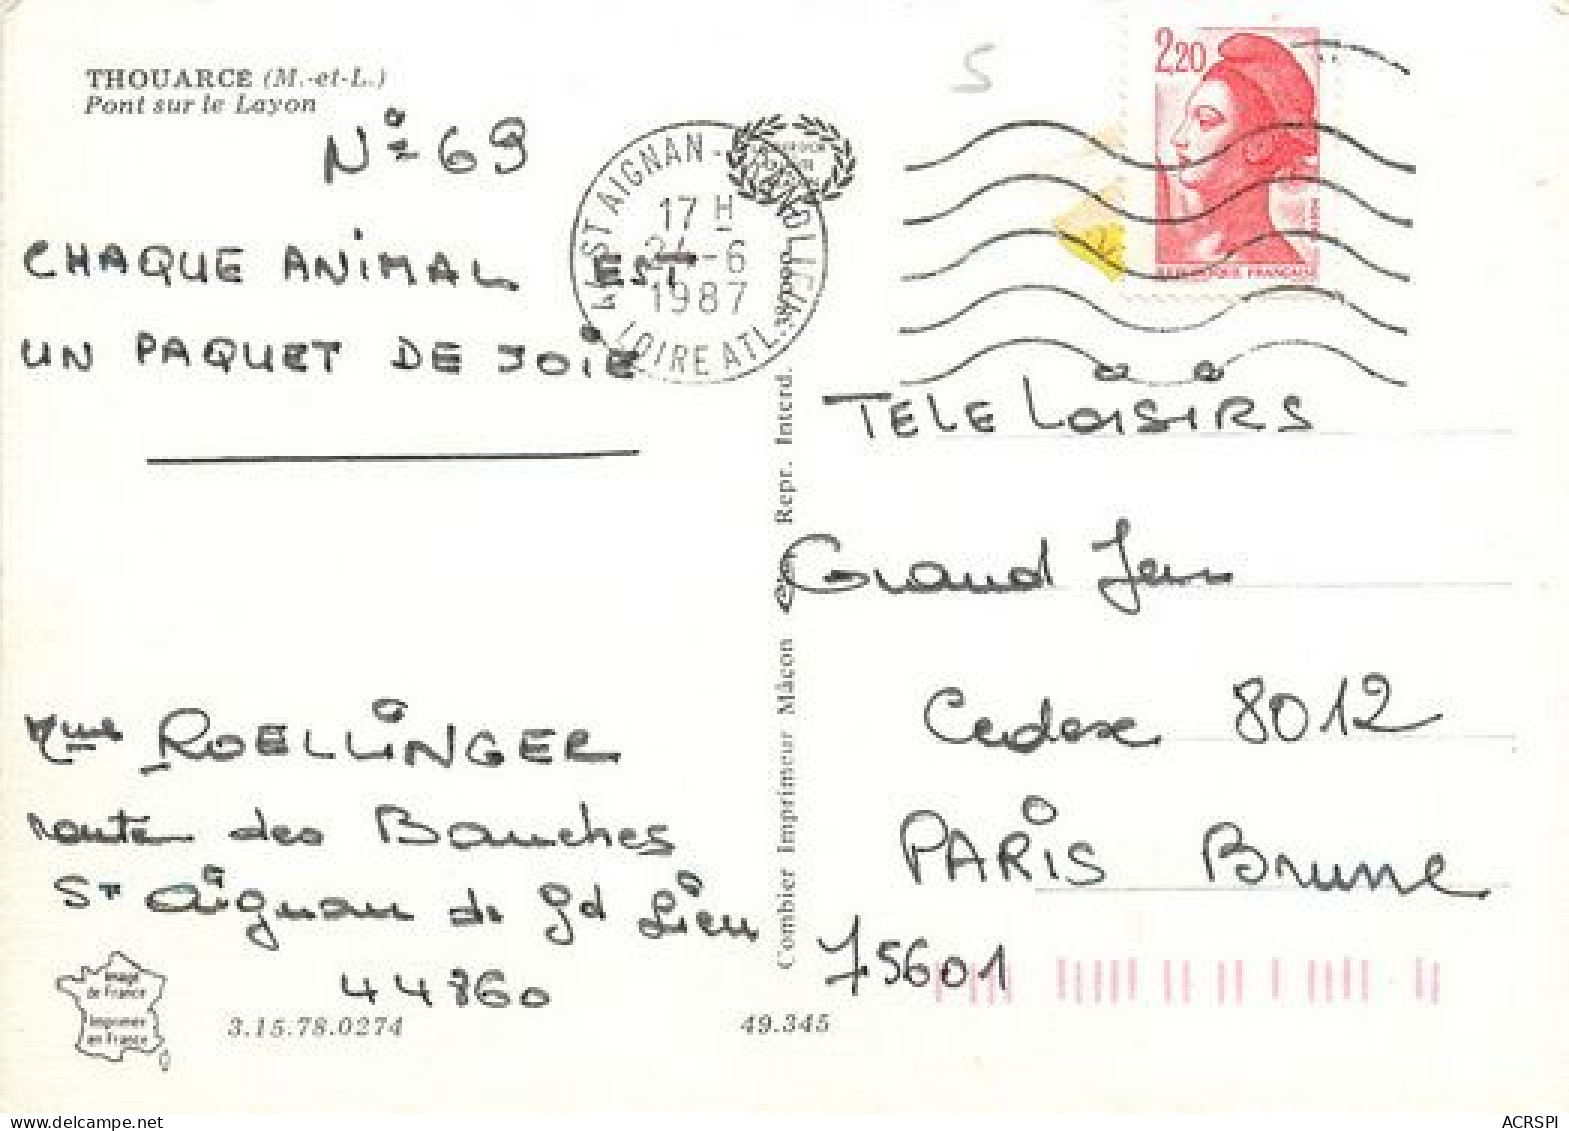 THOUARCE (M.-et-L.)
Pont sur le Layon
N° 69
CHAQUE ANIMAL EST
UN PAQUET DE JOIE
Mme ROELLINGER
route des Bauches
St Aignan de gd Lieu
44860
Image
de France
Imprimée
en France
3.15.78.0274
49.345
Combier Imprimeur Mâcon
Repr. Interd.
44 ST AIGNAN - GRANDLIEU
17 H
24-6
1987
LOIRE ATL.
38000
S
2,20
REPUBLIQUE FRANÇAISE
TELE LOISIRS
Grand Jeu
Cedex 8012
PARIS Brune
75601
ACRSPI